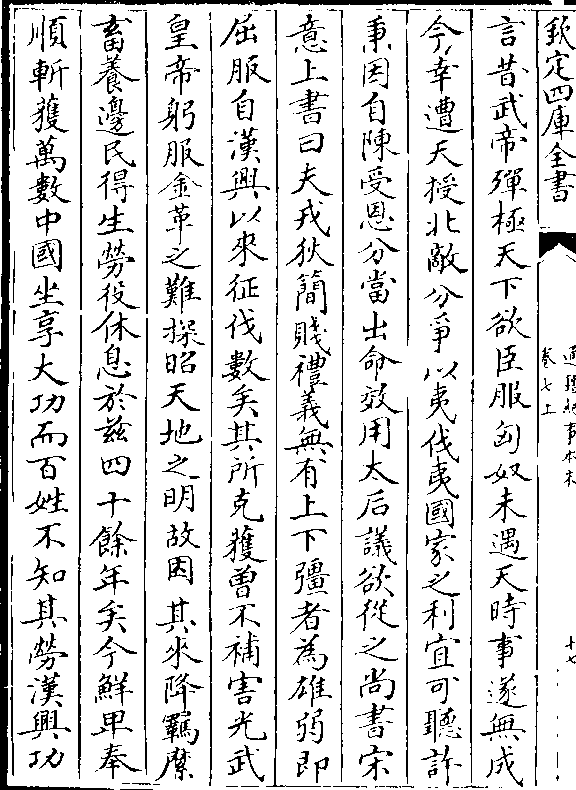 欽定四庫全書
通鑑紀事本末
卷七上
十七
言昔武帝殫極天下欲臣服匈奴未遇天時事遂無成
今幸遭天授北敵分爭以夷伐夷國家之利宜可聽許
秉因自陳受恩分當出命效用太后議欲從之尚書宋
意上書曰夫戎狄簡賤禮義無有上下彊者為雄弱即
屈服自漢興以來征伐數矣其所克獲曾不補害光武
皇帝躬服金革之難探昭天地之明故因其來降羈縻
畜養邊民得生勞役休息於兹四十餘年矣今鮮卑奉
順斬獲萬數中國坐享大功而百姓不知其勞漢興功